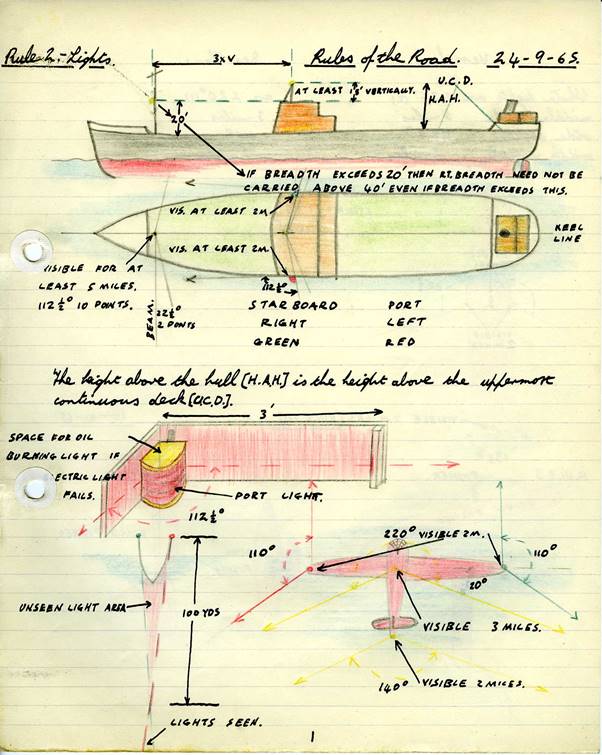 Rule 2.- Lights.
3xV
Rules of the Road.
24-9-65.
AT LEAST 15' VERTICALLY.
U.C.D.
H.A.H.
20'
IF BREADTH EXCEEDS 20' THEN RT. BREADTH NEED NOT BE
CARRIED ABOVE 40' EVEN IF BREADTH EXCEEDS THIS.
VIS. AT LEAST 2M
VIS. AT LEAST 2M.
KEEL
LINE
VISIBLE FOR AT
LEAST 5 MILES.
112½° 10 POINTS.
BEAM.
22½°
2 POINTS
112½°
STARBOARD PORT
RIGHT LEFT
GREEN RED
The height above the hull [H.A.H.] is the height above the uppermost
continuous deck [U.C.D.].
3'
SPACE FOR OIL
BURNING LIGHT IF
ELECTRIC LIGHT
FAILS.
PORT LIGHT.
112½°
220° VISIBLE 2M.
110°
110°
20°
UNSEEN LIGHT AREA
100 YDS
VISIBLE 3 MILES.
140° VISIBLE 2 MILES.
LIGHTS SEEN.
1